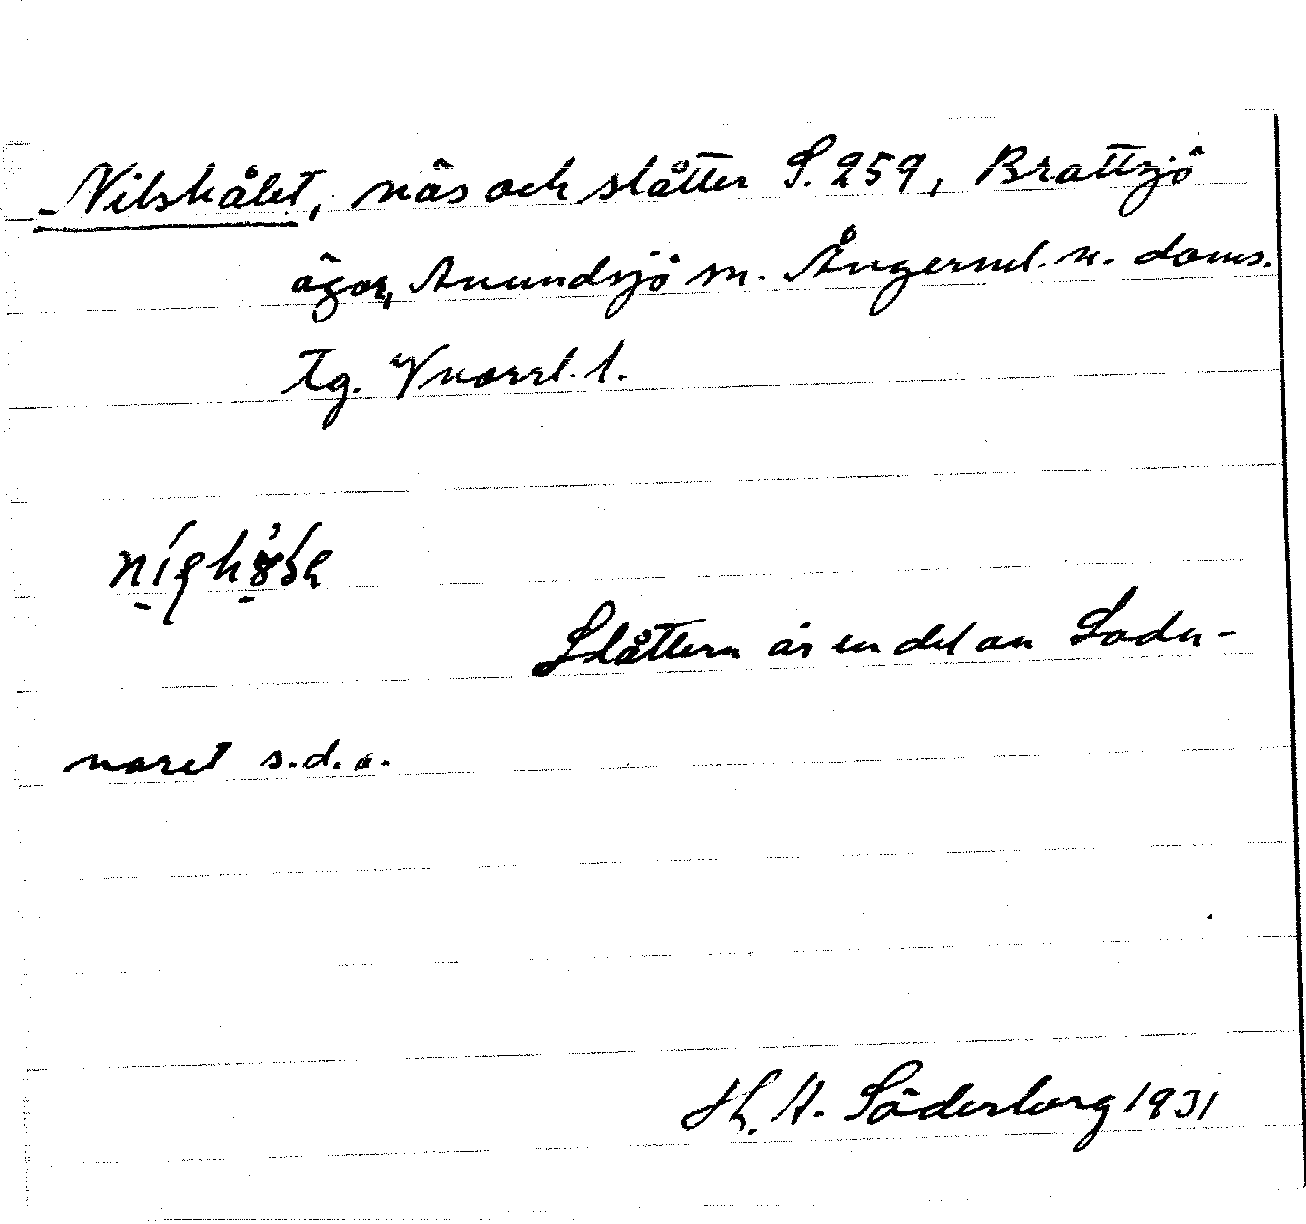 Nilshålet, näs och slåtter S. 259, Brattsjö
ägor, Anundsjö sn. Ångerml. n. doms.
tg. Vnorrl. l.
Slåttern är en del av Lada-
naret s.d.o.
Th. A. Söderborg 1931